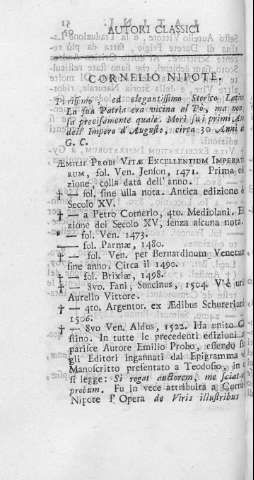 AUTORI CLASSICI
CORNELIO NIPOTE.
ed elegantissimo Storico
La sua Patria era vicina al Pò, ma non
si precisamente quale. Morì su i primi
dell' Impero d'Augusto, circa 30 Anni
G. C.
ÆMILII PROBI VITÆ EXCELLENTIUM IMPERAT
RUM, fol. Ven. Jenson, 1471. Prima e
zione, colla data dell'anno.
† — fol. sine ulla nota. Antica edizione
Secolo XV.
† — a Petro Cornerlo, 4to. Mediolani. E
zione del Secolo XV, senza alcuna nota.
— fol. Ven. 1473.
— fol. Parmæ, 1480.
† — fol. Ven. per Bernardinum Venetum
sine anno. Circa il 1490.
† — fol. Brixiæ, 1498.
† — 8vo. Fani, Soncinus, 1504. V'è un
Aurelio Vittore.
† — 4to. Argentor. ex Ædibus Schureriani
1506.
† — 8vo Ven. Aldus, 1522. Ha unito
stino. In tutte le precedenti edizioni
parisce Autore Emilio Probo, essendo
gli Editori ingannati dal Epigramma
Manoscritto presentato a Teodosio, in
si legge: Si rogat auctorem,
probum. Fu in vece attribuita a Corn
Nipote l'Opera de Viris illustribus